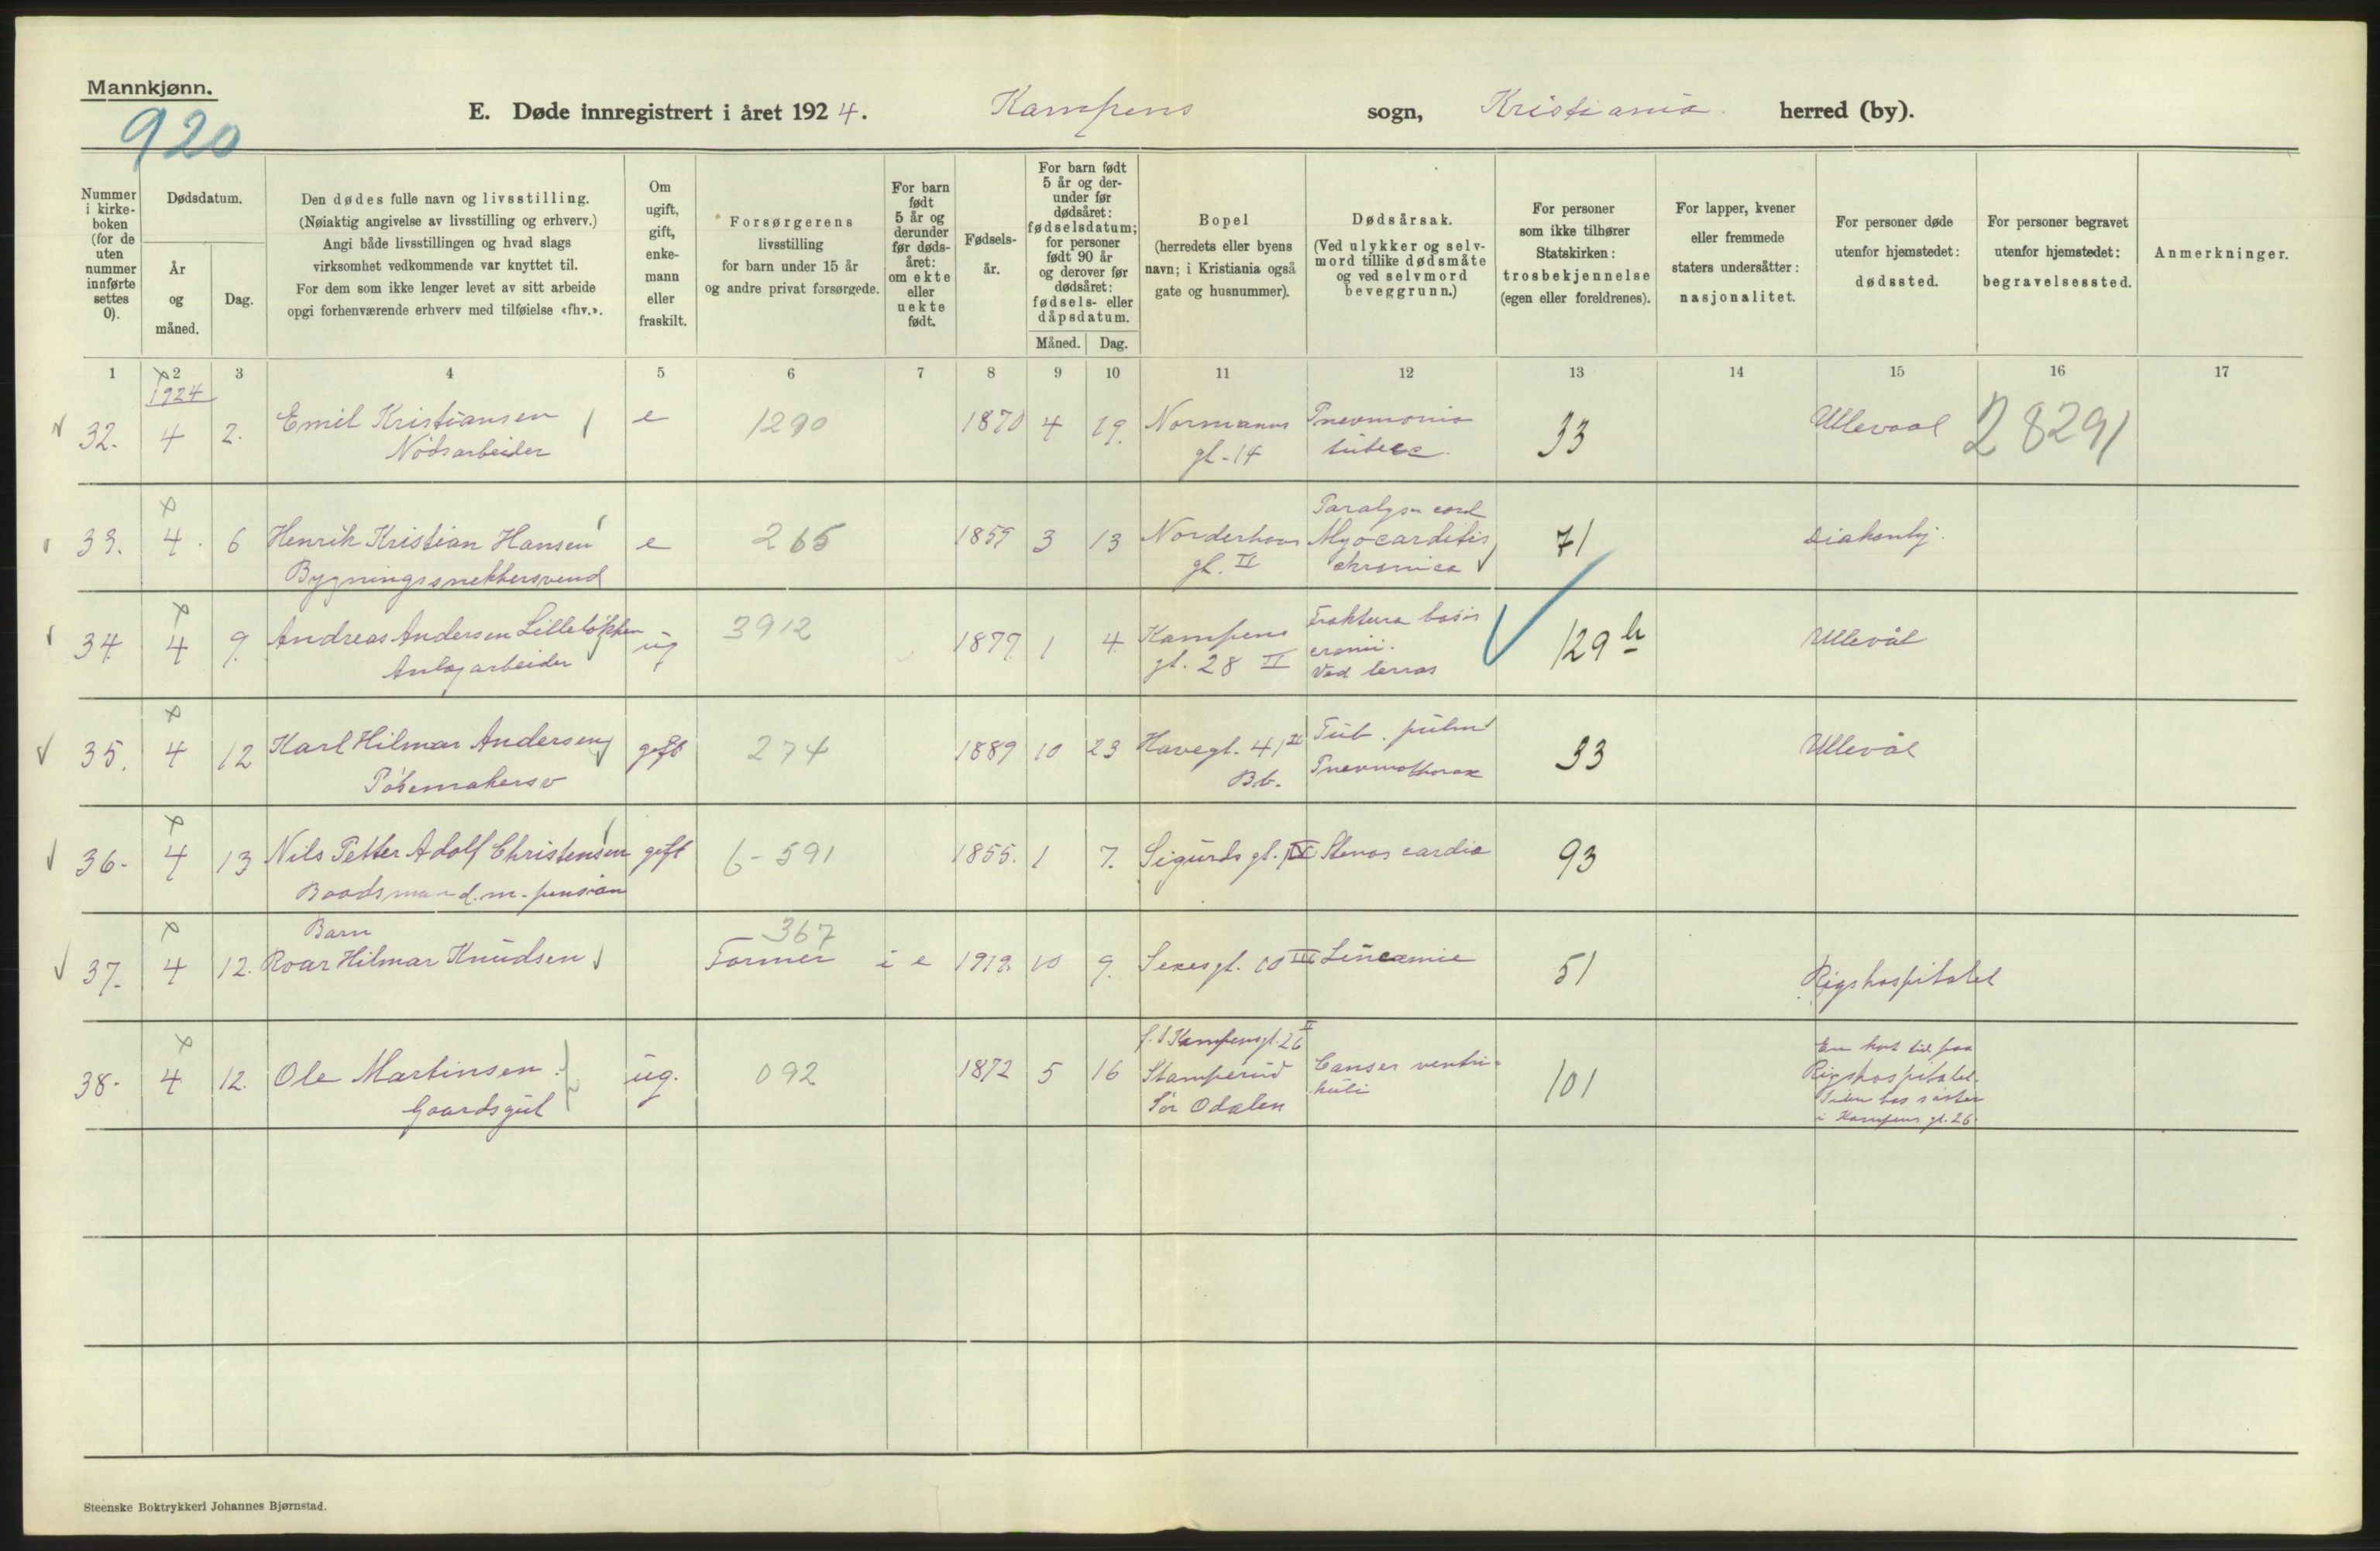 Mannkjønn.
920
E. Døde innregistrert i året 1924. Kampens sogn, Kristiania herred (by).
Nummer i kirke- boken (for de uten nummer innførte settes 0).
Dødsdatum.
År og måned.
Dag.
Den dødes fulle navn og livsstilling.
(Nøiaktig angivelse av livsstilling og erhverv.)
Angi både livsstillingen og hvad slags
virksomhet vedkommende var knyttet til.
For dem som ikke lenger levet av sitt arbeide
opgi forhenværende erhverv med tilføielse «fhv.».
Om ugift, gift, enke- mann eller fraskilt.
Forsørgerens
livsstilling
for barn under 15 år
og andre privat forsørgede.
For barn født 5 år og derunder før døds- året: om ekte eller uekte født.
Fødsels- år.
For barn født 5 år og der- under før dødsåret: fødselsdatum; for personer født 90 år og derover før dødsåret: fødsels- eller dåpsdatum.
Måned. Dag.
Bopel
(herredets eller byens
navn; i Kristiania også
gate og husnummer).
Dødsårsak.
(Ved ulykker og selv-
mord tillike dødsmåte
og ved selvmord
beveggrunn.)
For personer
som ikke tilhører
Statskirken:
trosbekjennelse
(egen eller foreldrenes).
For lapper, kvener
eller fremmede
staters undersåtter:
nasjonalitet.
For personer døde
utenfor hjemstedet:
dødssted.
For personer begravet
utenfor hjemstedet:
begravelsessted.
Anmerkninger.
1 2 3 4 5 6 7 8 9 10 11 12 13 14 15 16 17
1924
32. 4 2. Emil Kristiansen e 1290 1870 4 19. Normanns Pnevmonia 33 Ullevaal 28291
Nødsarbeider gt. 14
Paralys. cord
33. 4. 6 Henrik Kristian Hansen e 265 1859 3 13 Norderhovs Myocarditis 71 Diakonhj.
Bygningssnekkersvend gt. II chronica
34. 4 9. Andreas Andersen Lilleløkken ug 3912 1877 1 4. Kampens Fraktura basis 129 b Ullevål
Anlegsarbeider gt. 28 II cranii.
35. 4 12 Karl Hilmar Andersen gift 274 1889 10 23 Havegt. 41 II Tub. pulm 33 Ullevål
Pølsemakersv Bb. Pnevmothorax
36. 4 13 Nils Petter Adolf Christensen gift 6-591 1855. 1 7. Sigurds gt. Stenocardia 93
Baadsmand m. pension
Barn 367
37. 4 12. Roar Hilmar Knudsen Former i e 1919. 10 9. Sexesgt. 10 III Leucæmie 51 Rigshospitalet
Kampensgt. 26 II
38. 4 12. Ole Martinsen. ug. 092 1872 5 16 Stamperud Canser ventri- 101
Gaardsgut Sør Odalen kuli
En kort tid paa
Rigshospitalet.
Siden hos søster
i Kampens gt. 26.
Steenske Boktrykkeri Johannes Bjørnstad.